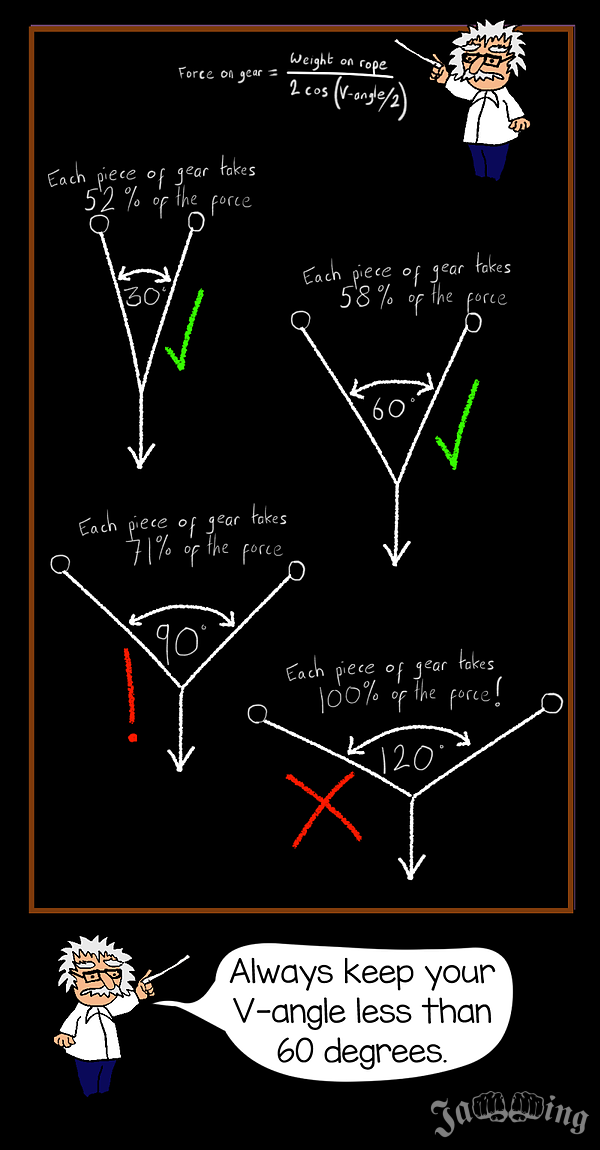 Force on gear = Weight on rope
2 cos (V-angle/2)
Each piece of gear takes
52% of the force
30°
Each piece of gear takes
58% of the force
60°
Each piece of gear takes
71% of the force
90°
Each piece of gear takes
100% of the force!
120°
Always keep your
V-angle less than
60 degrees.
Ja ing